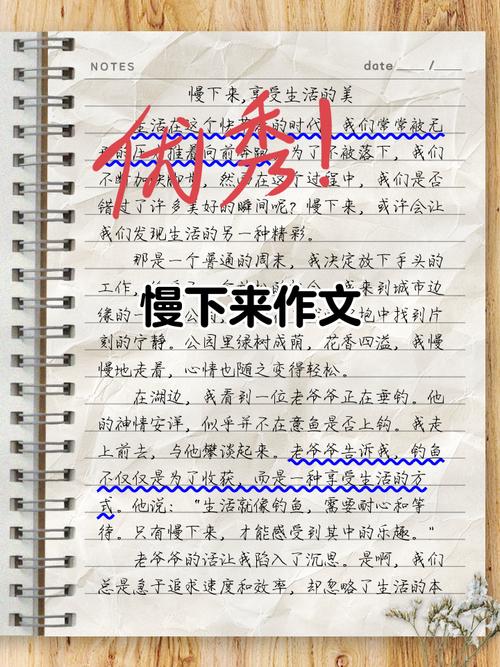 NOTES
date /
慢下来,享受生活的美
生活在这个快节奏的时代,我们常常被无
推着向前奔跑。为了不被落下,我们
不断加快脚步,然而在这个过程中,我们是否
错过了许多美好的瞬间呢?慢下来,或许会让
我们发现生活的另一种精彩。
优秀!
那是一个普通的周末,我决定放下手头的
工作,
来到城市边
慢下来作文
缘的一
公园,
抱中找到片
刻的宁静。公园里绿树成荫,花香四溢,我慢
慢地走着,心情也随之变得轻松。
在湖边,我看到一位老爷爷正在垂钓。他
的神情安详,似乎并不在意鱼是否上钩。我走
上前去,与他攀谈起来。老爷爷告诉我,钓鱼
不仅仅是为了收获,而是一种享受生活的方
式。他说:“生活就像钓鱼,需要耐心和等
待。只有慢下来,才能感受到其中的乐趣。"
老爷爷的话让我陷入了沉思。是啊,我们
总是急于追求速度和效率,却忽略了生活的本